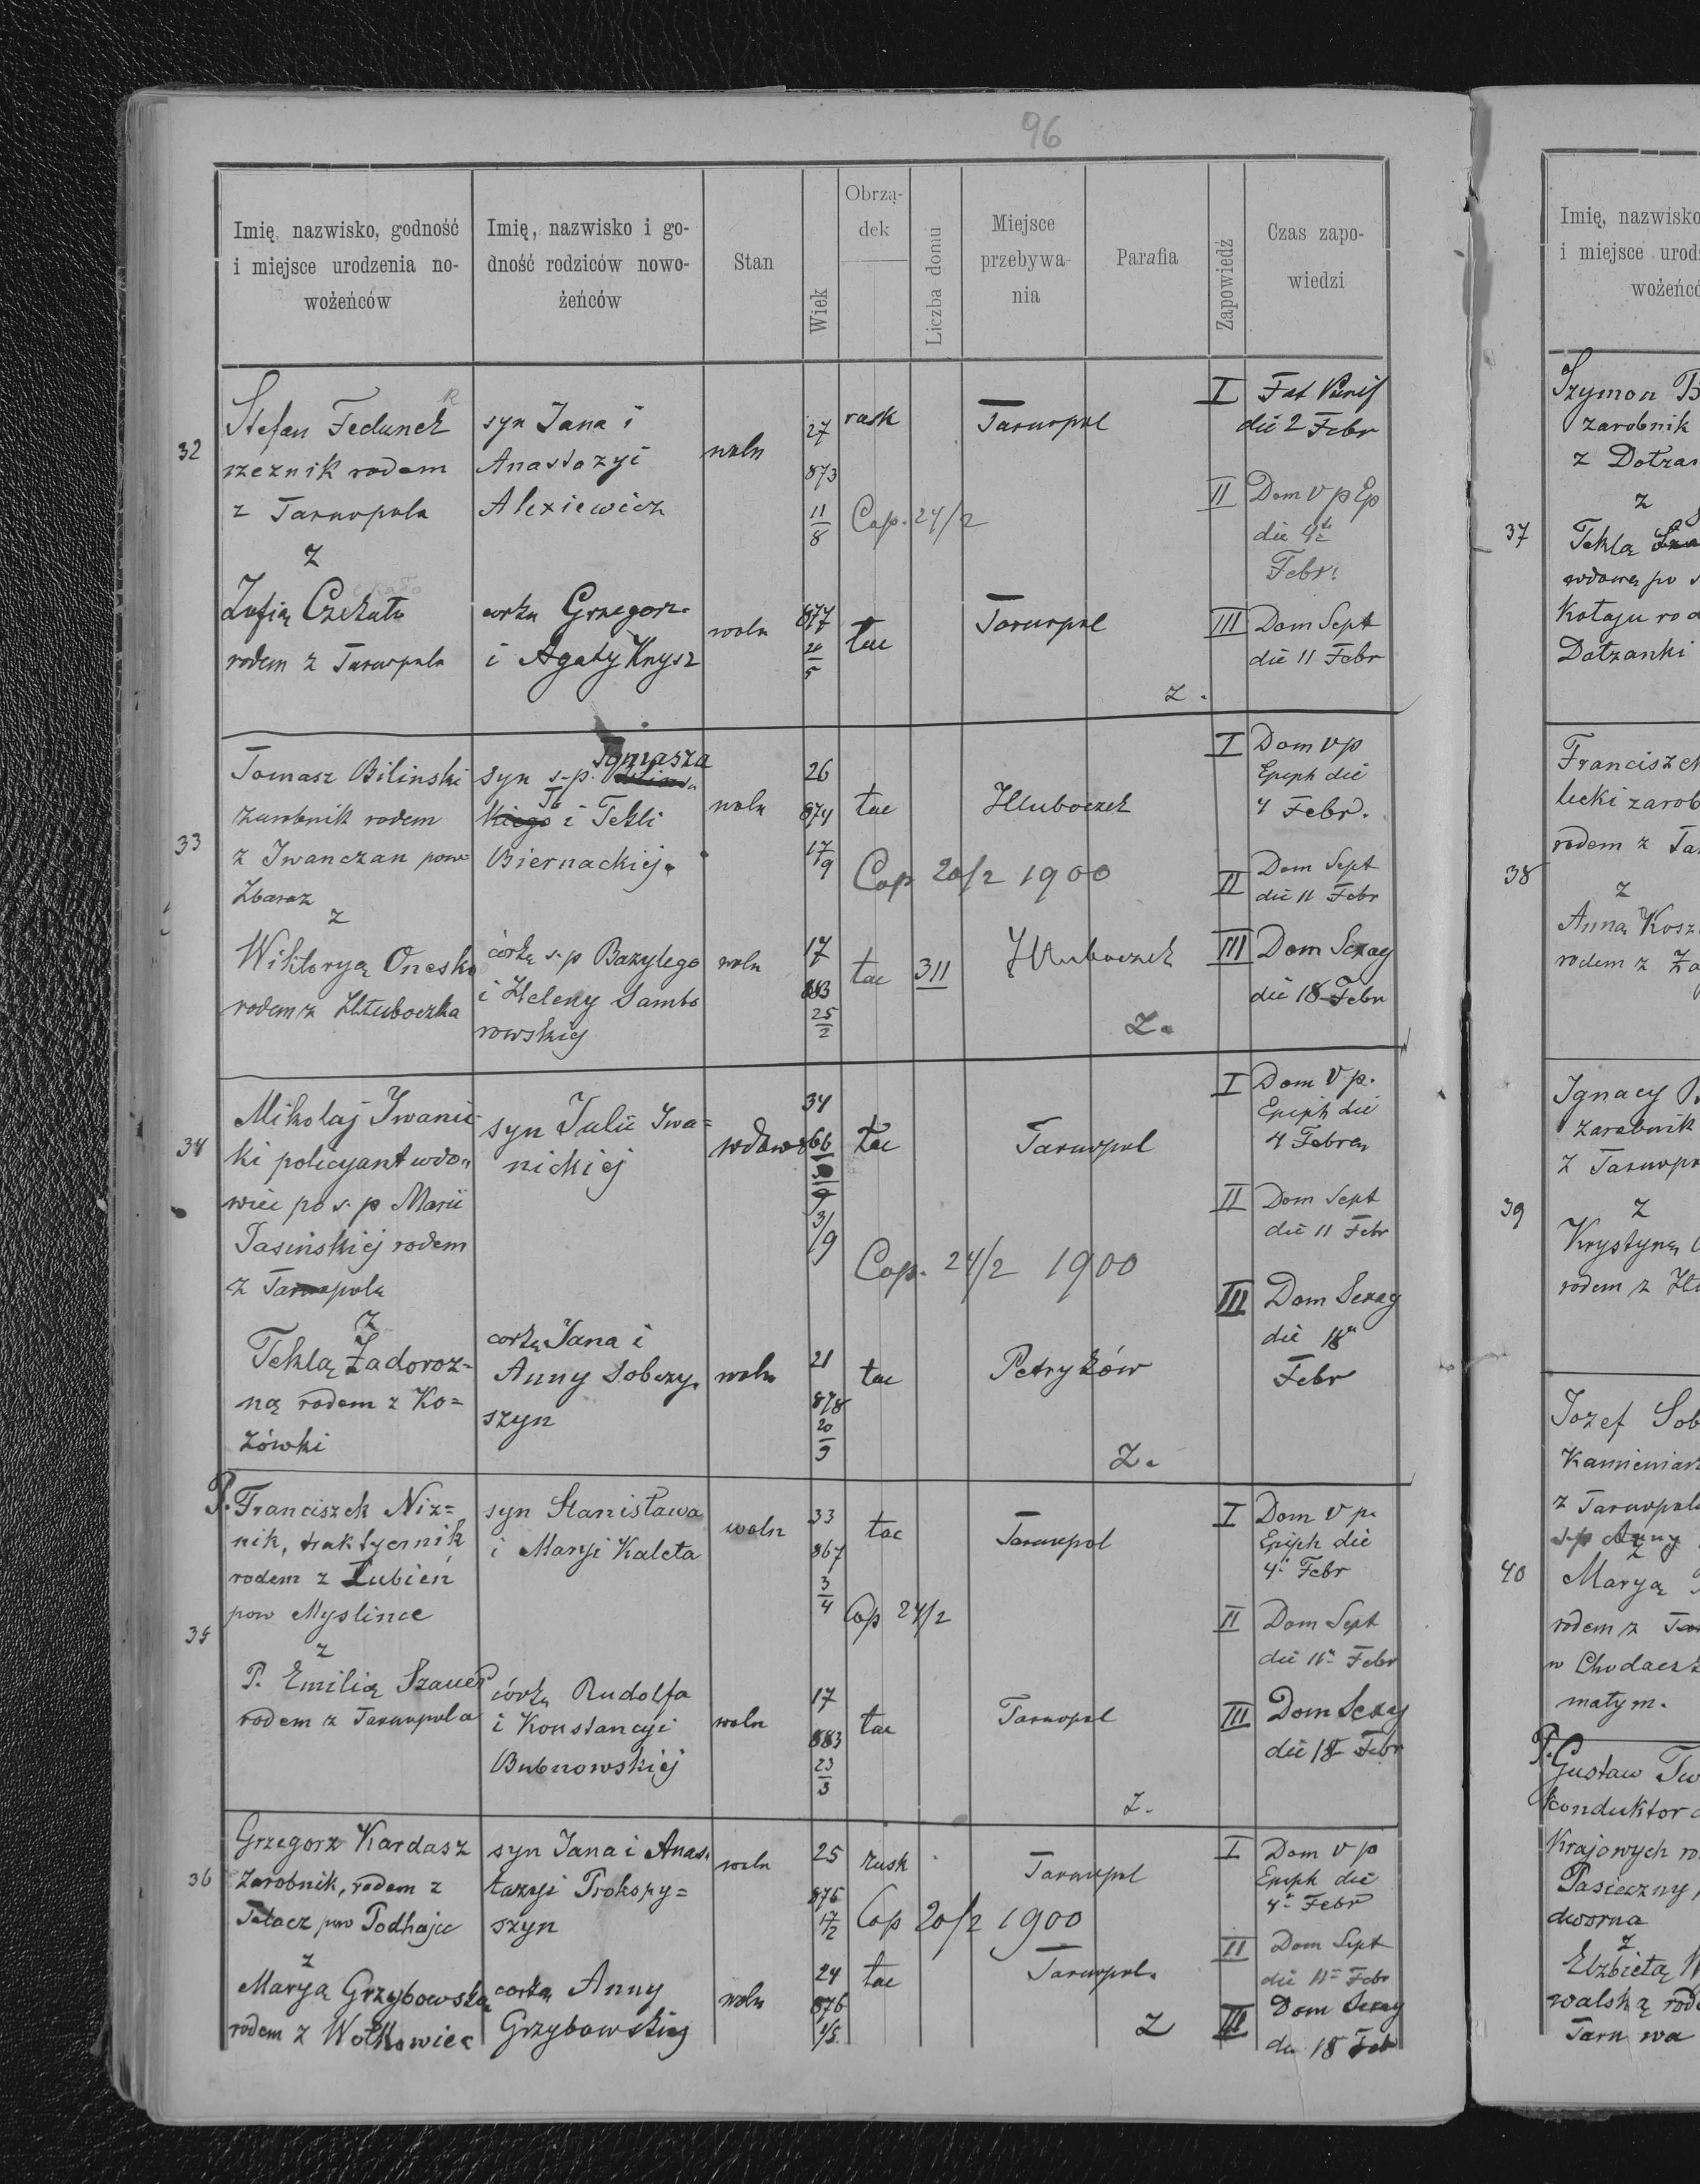 96
Imię, nazwisko, godność i miejsce urodzenia nowożeńców
Imię, nazwisko i godność rodziców nowożeńców
Stan
Wiek
Obrządek
Liczba domu
Miejsce przebywania
Parafia
Zapowiedź
Czas zapowiedzi
32
Stefan Fedunek
rzeznik rodem
z Tarnopola
z
Zofią Czekała
rodem z Tarnopola
syn Jana i
Anastazyi
Alexiewicz
corka Grzegorz.
i Agaty Knysz
woln
woln
27
873
11/8
877
5
rusk
Cop. 24/2
łac
Tarnopol
Tarnopol
z.
I
die 2 Febr
II Dom V p Ep
die 4
Febr.
III Dom Sept
die 11 Febr
33
Tomasz Bilinski
zarobnik rodem
z Iwanczan pow
Zbaraz
z
Wiktoryą Onesko
rodem z Hłuboczka
Tomasza
syn s.p.
i Tekli
Biernackiej.
córkę s.p Bazylego
i Heleny Sambo
rowskiej
woln
woln
26
874
17/9
17
883
25/2
łac
Cop 20/2 1900
łac
311
Hluboczek
Hłuboczek
Z.
I Dom V p
Epiph die
4 Febr.
II Dom Sept
die 11 Febr
III Dom Sexag
die 18 Febr
34
Mikolaj Iwanic
ki policyant wdo
wiec po s. p Marii
Jasińskiej rodem
z Tarnopola
z
Teklą Zadoroz=
ną rodem z Ko=
zówki
syn Julii Iwa=
nickiej
corkę Jana i
Anny Sobczy
szyn
wdow
woln
34
866
3/9
21
878
20/9
łac
Cop. 24/2 1900
łac
Tarnopol
Petryków
Z.
I Dom V p.
Epiph die
4 Febra
II Dom Sept
die 11 Febr
III Dom Sexag
die 18
Febr
35
P. Franciszek Niz=
nik, traktyernik
rodem z Lubień
pow Myslince
z
P. Emilią Szauer
rodem z Tarnopola
syn Stanisława
i Maryi Kaleta
córkę Rudolfa
i Konstancyi
Bubnowskiej
woln
woln
33
867
3/4
17
883
23/3
łac
Cop 24/2
łac
Tarnopol
Tarnopol
Z.
I Dom V p.
Epiph die
4 Febr
II Dom Sept
die 11 Febr
III Dom Sexag
die 18 Febr
36
Grzegorz Kardasz
zarobnik, rodem z
Telacz pow Podhajce
z
Maryą Grzybowską
rodem z Wołkowiec
syn Jana i Anas
tazyi Prokopy=
szyn
corką Anny
Grzybowskiej
woln
woln
25
875
17/2
24
876
1/5
rusk
Cop 20/2 1900
łac
Tarnopol
Tarnopol.
Z
I Dom V p
Epiph die
4 Febr
II Dom Sept
die 11 Febr
III Dom Sexag
die 18 Feb
Imię, nazwisko
i miejsce urod
wożeńc
37
Szymon
zarobnik
z
Teklą
wdową po
Kołaju rod
Dołzanki
38
Franciszek
lecki zarob
rodem z Ta
z
Anną Kosz
rodem z Za
39
Ignacy
zarobnik
z Tarnop
z
Krystyną
rodem z Hł
40
Jozef Sob
Kamieniarz
z Tarnopola
s.p Anny
z
Maryą
rodem z
w Chodaczk
małym.
P. Gustaw
konduktor
Krajowych ro
Pasieczny
dworna
z
Elzbietą
walską rod